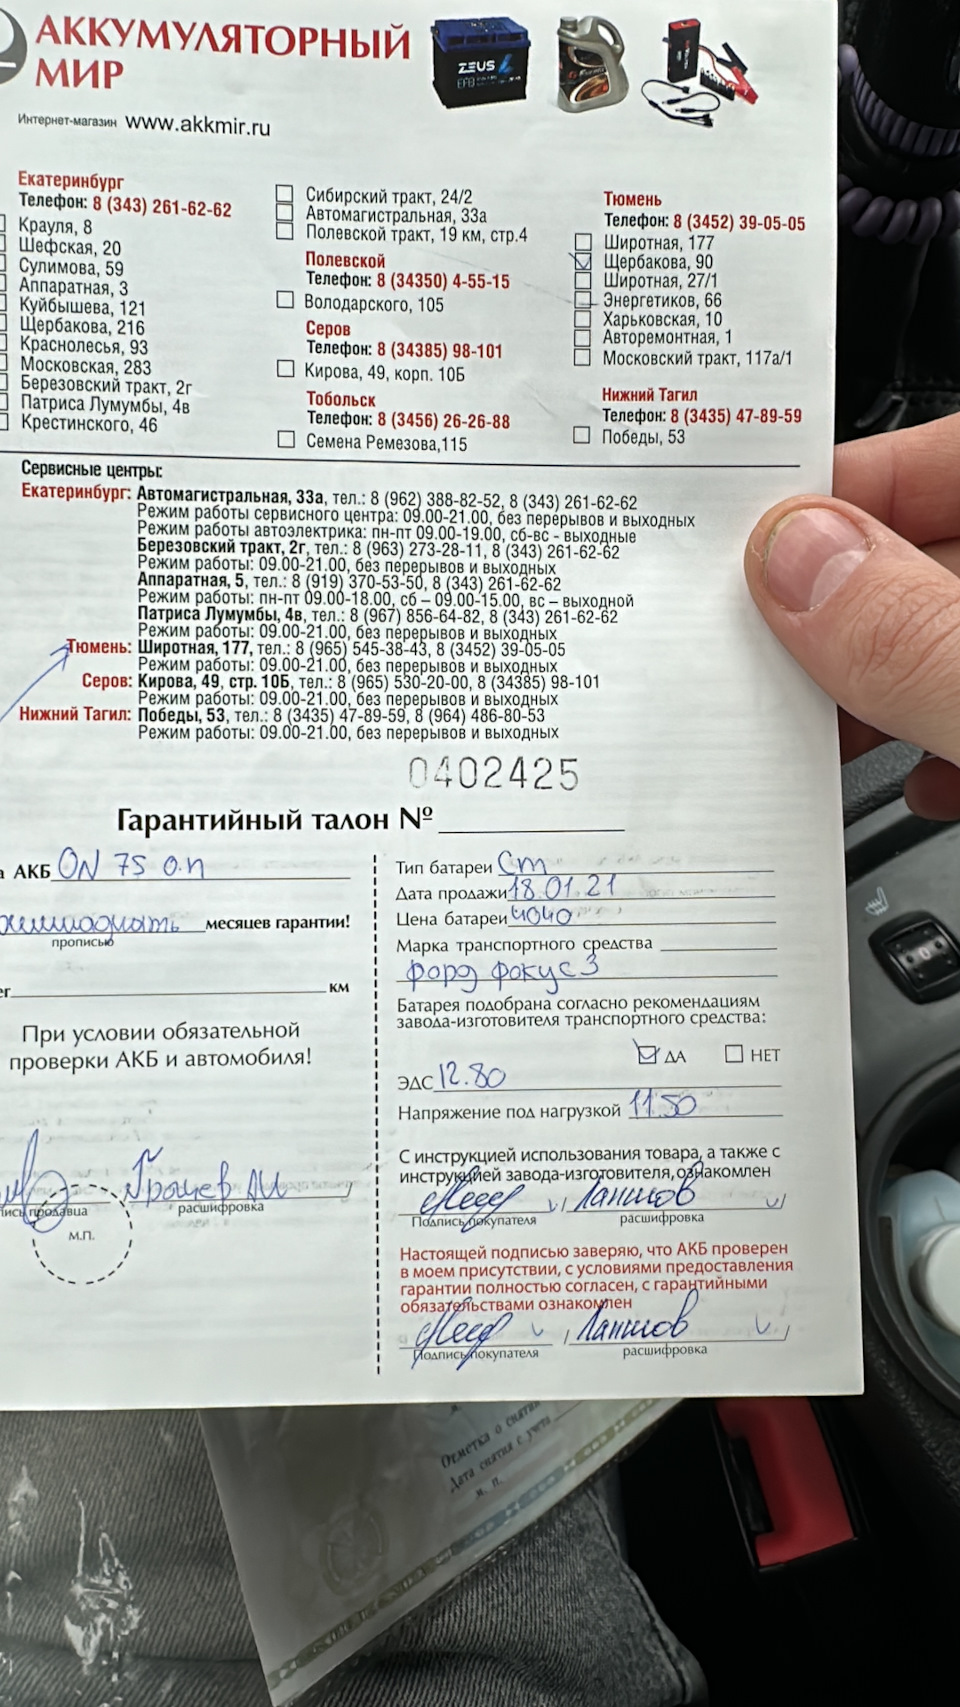 АККУМУЛЯТОРНЫЙ
МИР
Интернет-магазин www.akkmir.ru
ZEUS
EFB
Екатеринбург
Телефон: 8 (343) 261-62-62
Крауля, 8
Шефская, 20
Сулимова, 59
Аппаратная, 3
Куйбышева, 121
Щербакова, 216
Краснолесья, 93
Московская, 283
Березовский тракт, 2г
Патриса Лумумбы, 4в
Крестинского, 46
Сибирский тракт, 24/2
Автомагистральная, 33а
Полевской тракт, 19 км, стр.4
Полевской
Телефон: 8 (34350) 4-55-15
Володарского, 105
Серов
Телефон: 8 (34385) 98-101
Кирова, 49, корп. 10Б
Тобольск
Телефон: 8 (3456) 26-26-88
Семена Ремезова,115
Тюмень
Телефон: 8 (3452) 39-05-05
Широтная, 177
Щербакова, 90
Широтная, 27/1
Энергетиков, 66
Харьковская, 10
Авторемонтная, 1
Московский тракт, 117а/1
Нижний Тагил
Телефон: 8 (3435) 47-89-59
Победы, 53
Сервисные центры:
Екатеринбург: Автомагистральная, 33а, тел.: 8 (962) 388-82-52, 8 (343) 261-62-62
Режим работы сервисного центра: 09.00-21.00, без перерывов и выходных
Режим работы автоэлектрика: пн-пт 09.00-19.00, сб-вс - выходные
Березовский тракт, 2г, тел.: 8 (963) 273-28-11, 8 (343) 261-62-62
Режим работы: 09.00-21.00, без перерывов и выходных
Аппаратная, 5, тел.: 8 (919) 370-53-50, 8 (343) 261-62-62
Режим работы: пн-пт 09.00-18.00, сб – 09.00-15.00, вс – выходной
Патриса Лумумбы, 4в, тел.: 8 (967) 856-64-82, 8 (343) 261-62-62
Режим работы: 09.00-21.00, без перерывов и выходных
Тюмень: Широтная, 177, тел.: 8 (965) 545-38-43, 8 (3452) 39-05-05
Режим работы: 09.00-21.00, без перерывов и выходных
Серов: Кирова, 49, стр. 10Б, тел.: 8 (965) 530-20-00, 8 (34385) 98-101
Режим работы: 09.00-21.00, без перерывов и выходных
Нижний Тагил: Победы, 53, тел.: 8 (3435) 47-89-59, 8 (964) 486-80-53
Режим работы: 09.00-21.00, без перерывов и выходных
0402425
Гарантийный талон №
а АКБ ON 75 о.п
месяцев гарантии!
прописью
ег км
При условии обязательной
проверки АКБ и автомобиля!
пись продавца расшифровка
М.П.
Тип батареи Cm
Дата продажи 18.01.21
Цена батареи 4040
Марка транспортного средства
форд фокус 3
Батарея подобрана согласно рекомендациям
завода-изготовителя транспортного средства:
ДА НЕТ
ЭДС 12.80
Напряжение под нагрузкой 11.50
С инструкцией использования товара, а также с
инструкцией завода-изготовителя, ознакомлен
Лапшов
Подпись покупателя расшифровка
Настоящей подписью заверяю, что АКБ проверен
в моем присутствии, с условиями предоставления
гарантии полностью согласен, с гарантийными
обязательствами ознакомлен
Лапшов
Подпись покупателя расшифровка
Отметка о снятии
Дата снятия с учета
м. п.